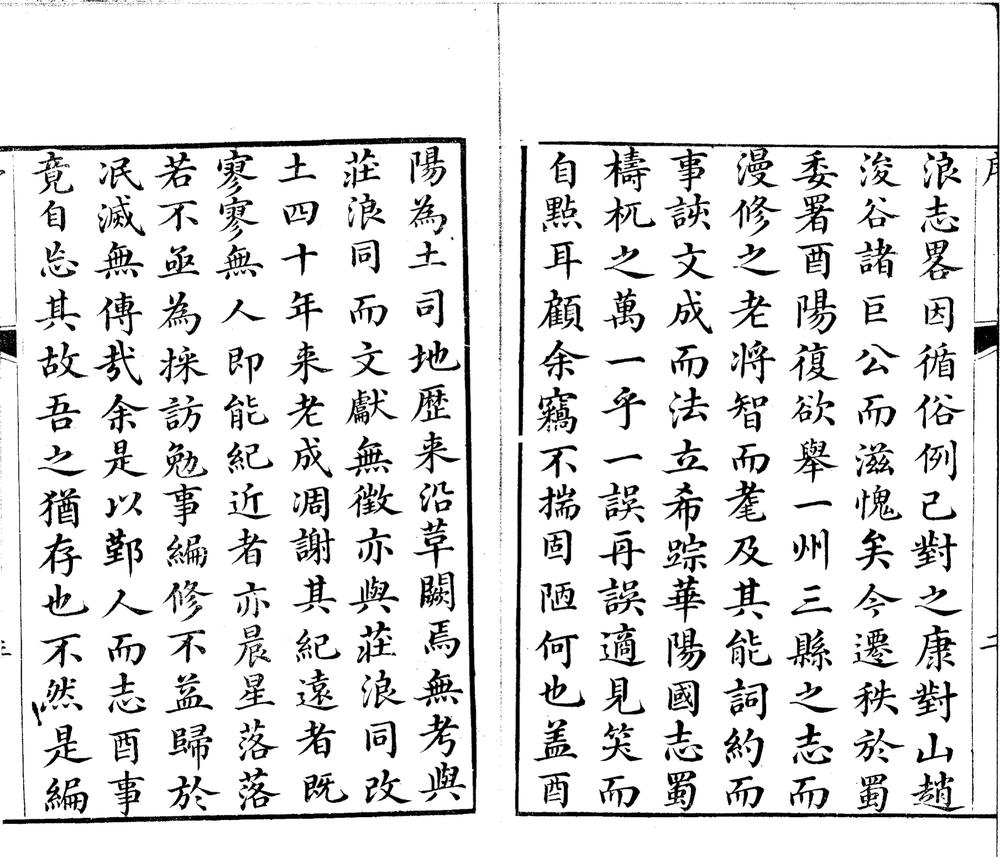 浪志畧因循俗例已對之康對山趙
浚谷諸巨公而滋愧矣今遷秩於蜀
委署酉陽復欲舉一州三縣之志而
漫修之老將智而耄及其能詞約而
事該文成而法立希踪華陽國志蜀
檮杌之萬一乎一誤再誤適見笑而
自點耳顧余竊不揣固陋何也盖酉
陽為土司地歷来沿革闕焉無考與
莊浪同而文獻無徵亦與莊浪同改
土四十年来老成凋謝其紀遠者既
寥寥無人即能紀近者亦晨星落落
若不亟為採訪勉事編修不益歸於
泯滅無傳哉余是以鄞人而志酉事
竟自忘其故吾之猶存也不然是編
二
三